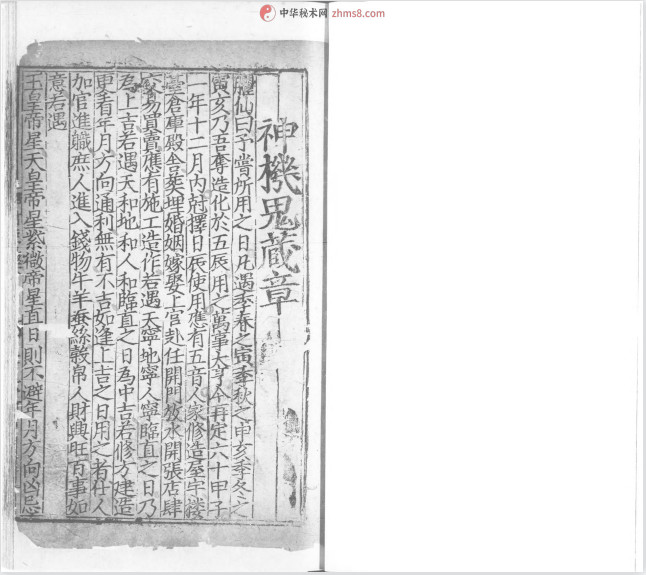 中华秘术网 zhms8.com
神機鬼藏章
仙曰予嘗所用之日凡遇季春之寅季秋之申亥季冬之
寅亥乃吾奪造化於五辰用之萬事大亨今再定六十甲子
一年十二月內尅擇日辰使用應有五音人家修造屋宇樓
臺倉庫殿舍葬埋婚姻嫁娶上官赴任開門放水開張店肆
交易買賣應有施工造作若遇天寧地寧人寧臨直之日乃
為上吉若遇天和地和人和臨直之日為中吉若修方建造
更看年月方向通利無有不吉如逢上吉之日用之者仕人
加官進職庶人進入錢物牛羊蚕絲穀帛人財興旺百事如
意若遇
玉皇帝星天皇帝星紫微帝星直日則不避年月方向凶忌